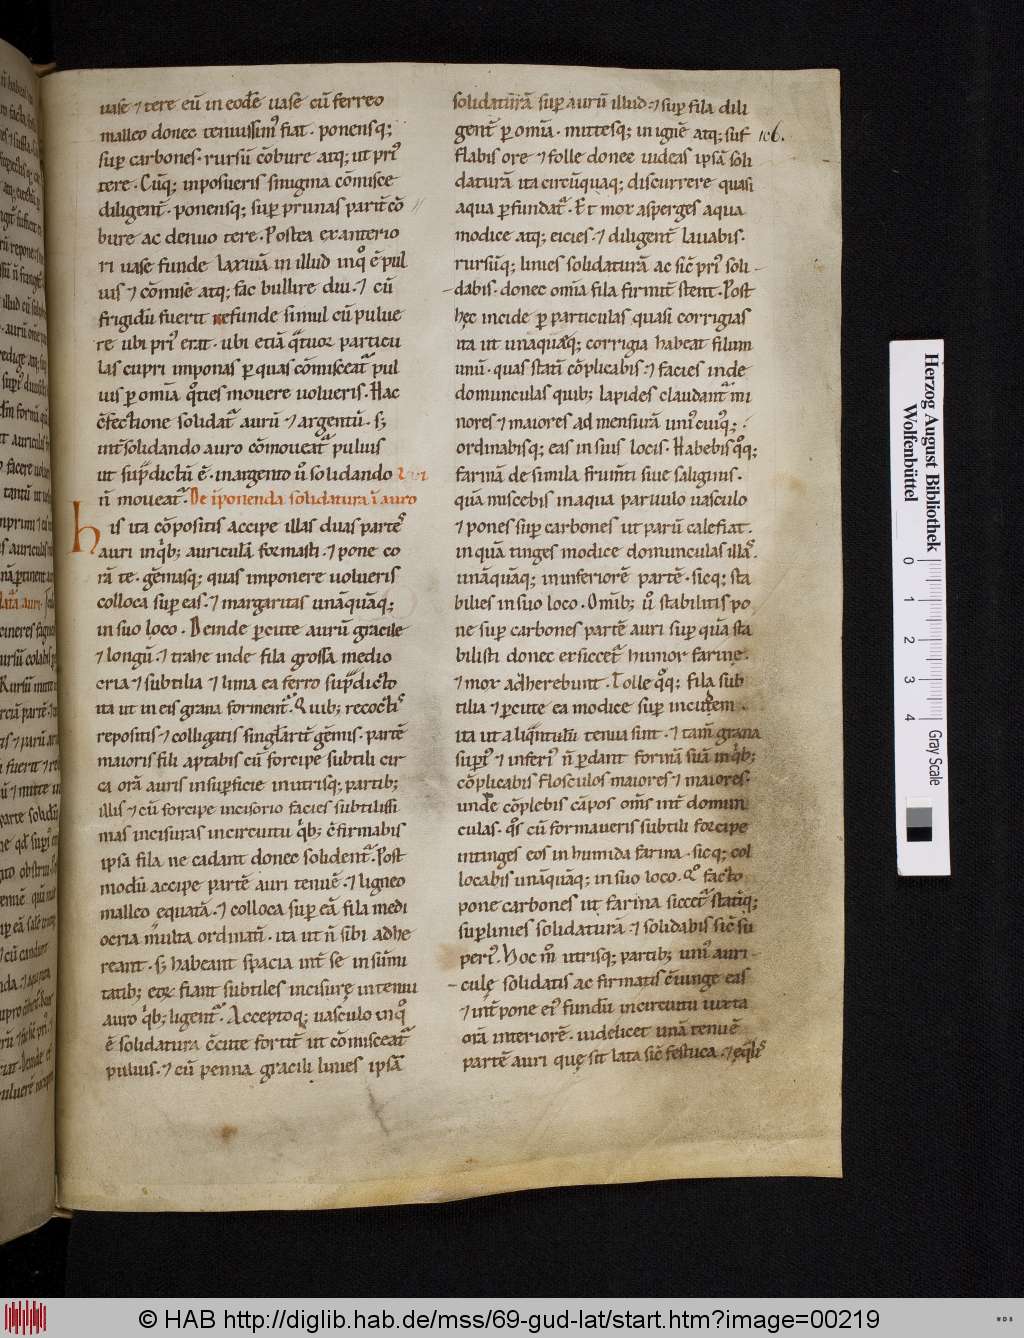 uasẽ ⁊ tere eũ in eodẽ uase cũ ferreo
malleo donec tenuissimꝰ fiat · ponensq;
suꝑ carbones · rursũ cõbure atq; ut priꝰ
tere · Cũq; inposueris sinugina cõmisce
diligent̃ · ponensq; suꝑ prunas parit̃ cõ
bure ac denuo tere · Postea ex anterio
ri uase funde laxiuã in illud in q̊ ẽ pul
uis ⁊ cõmisẽ atq; fac bullire diu · ⁊ cũ
frigidũ fuerit refunde simul cũ pulue
re ubi priꝰ erat · ubi etiã q̃tuor particu
las cupri imponas ꝑ quas cõmisceat᷑ pul
uis ꝑ omĩa q̊ties mouere uolueris · Hac
c̃fectione solidat᷑ aurũ ⁊ argentũ · s;
int̃ solidando auro cõmoueat᷑ puluis
ut sup̃dictũ ẽ · in argento ũ solidando
ñ moueat᷑ · De ĩponenda solidatura ĩ auro
His ita cõpositis accipe illas duas parteˢ
auri in qͥb; auriculã formasti · ⁊ pone co
rã te · gẽmasq; quas imponere uolueris
colloca suꝑ eas · ⁊ margaritas unãquãq;
in suo loco · Deinde ꝑcute aurũ gracile
⁊ longũ · ⁊ trahe inde fila grossa medio
cria ⁊ subtilia ⁊ lima ea ferro sup̃dicto
ita ut in eis grana forment᷑ · Quib; recoctˢ
repositis ⁊ colligatis singlarit̃ gẽmis · partẽ
maioris fili aptabis cũ forcipe subtili cir
ca orã auris in suꝑficie in utrisq; partib;
illis ⁊ cũ forcipe incisorio facies subtilissi
mas incisuras in circuitu qͥb; c̃firmabis
ipsa fila ne cadant donec solident᷑ · Post
modũ accipe partẽ auri tenuẽ · ⁊ ligneo
malleo equatã · ⁊ colloca suꝑ eã fila medi
ocria multa ordinatĩ · ita ut ñ sibi adhe
reant · s; habeant spacia int̃ se in sũmi
tatib; eoꝝ fiant subtiles incisurę in tenui
auro qͥb; ligent᷑ · Acceptoq; uasculo in q̊
ẽ solidatura c̃cute fortit̃ ut cõmisceat᷑
puluis · ⁊ cũ penna gracili linies ipsã
solidaturã suꝑ aurũ illud · ⁊ suꝑ fila dili
gent̃ ꝑ omĩa · mittesq; in ignẽ atq; suf
106.
flabis ore ⁊ folle donec uideas ipsã soli
daturã ita circũquaq; discurrere quasi
aqua ꝑfundat᷑ · Et mox asperges aqua
modice atq; eicies · ⁊ diligent̃ lauabis ·
rursũq; linies solidaturã ac sic̃ priꝰ soli
dabis · donec omĩa fila firmit̃ stent · Post
hęc incide ꝑ particulas quasi corrigias
ita ut unaquæq; corrigia habeat filum
unũ · quas statĩ cõplicabis · ⁊ facies inde
domunculas quib; lapides claudant᷑ mi
nores ⁊ maiores ad mensurã uniꝰcuiꝰq; ·
ordinabisq; eas in suis locis · Habebis q̊q;
farinã de simila frum̃ti siue saliginis ·
quã miscebis in aqua paruulo uasculo
⁊ pones suꝑ carbones ut parũ calefiat ·
in quã tinges modice domunculas illaˢ ·
unãquãq; in inferiorẽ partẽ · sicq; sta
bilies in suo loco · Omĩb; ũ stabilitis po
ne suꝑ carbones partẽ auri suꝑ quã sta
bilisti donec exsiccet᷑ humor farinę ·
⁊ mox adherebunt · Tolle q̊q; fila sub
tilia ⁊ ꝑcute ea modice suꝑ incudem ·
ita ut aliq̃ntulũ tenuia sint · ⁊ tam̃ grana
suꝑiꝰ ⁊ inferiꝰ ñ ꝑdant formã suã in qͥb;
cõplicabis flosculos maiores ⁊ maiores ·
unde cõplebis cãpos om̃s int̃ domun
culas · q̊s cũ formaueris subtili forcipe
intinges eos in humida farina · sicq; col
locabis unãquãq; in suo loco · Q̊ facto
pone carbones ut farina siccet᷑ statĩq;
suꝑlinies solidaturã · ⁊ solidabis sic̃ su
periꝰ · Hoc m̊ utrisq; partib; uniꝰ auri
culę solidatis ac firmatis c̃iunge eas
⁊ int̃pone eiꝰ fundũ in circuitu iuxta
orã interiorẽ · uidelicet unã tenuẽ
partẽ auri quę sit lata sic̃ festuca · ⁊ eq̃lˢ
Herzog August Bibliothek
Wolfenbüttel
0 1 2 3 4
Gray Scale
© HAB http://diglib.hab.de/mss/69-gud-lat/start.htm?image=00219